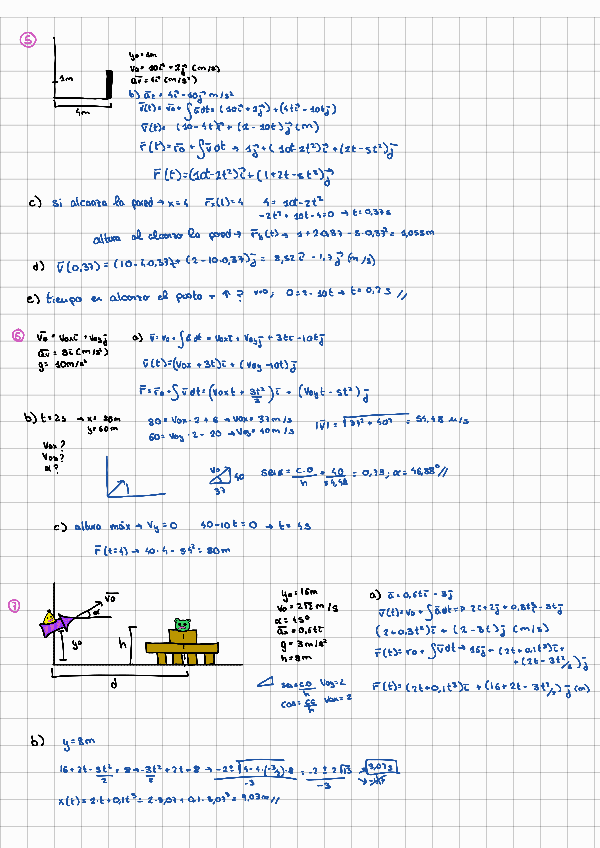 5
y₀ = 1m
v₀ = 10i⃗ + 2j⃗ (m/s)
a⃗v = 4i⃗ (m/s²)
1m
4m
b) a⃗t = 4i⃗ - 10j⃗ m/s²
v⃗(t) = v⃗₀ + ∫a⃗dt = (10i⃗ + 2j⃗) + (4ti⃗ - 10tj⃗)
v⃗(t) = (10 - 4t)i⃗ + (2 - 10t)j⃗ (m)
r⃗(t) = r⃗₀ + ∫v⃗dt → 1j⃗ + (10t - 2t²)i⃗ + (2t - 5t²)j⃗
r⃗(t) = (10t - 2t²)i⃗ + (1 + 2t - 5t²)j⃗
c) si alcanza la pared → x = 4 4 = 10t - 2t²
-2t² + 10t - 4 = 0 → t = 0,37s
altura al alcanzar la pared →
d) v⃗(0,37) = (10 - 4·0,37)i⃗ + (2 - 10·0,37)j⃗ = 8,52i⃗ - 1,7j⃗ (m/s)
e) tiempo en alcanzar el punto + ↑? v=0; 0 = 2 - 10t → t = 0,2s //
6
v⃗₀ = v₀xi⃗ + v₀yj⃗
a⃗v = 3i⃗ (m/s²)
g = 10m/s²
a) v⃗ = v₀ + ∫a⃗dt = v₀xi⃗ + v₀yj⃗ + 3ti⃗ - 10tj⃗
v⃗(t) = (v₀x + 3t)i⃗ + (v₀y - 10t)j⃗
r⃗ = r⃗₀ + ∫v⃗dt = (v₀xt + 3t²/2)i⃗ + (v₀yt - 5t²)j⃗
b) t = 2s → x = 80m
y = 60m
80 = v₀x·2 + 6 → v₀x = 37m/s
60 = v₀y·2 - 20 → v₀y = 40m/s
|v⃗| = √37² + 40² = 54,48 m/s
v₀x?
v₀y?
α?
v₀
40
37
senα = c.o/h = 40/54,48 = 0,73; α = 46,88° //
c) altura máx → Vy = 0 40 - 10t = 0 → t = 4s
r⃗(t=4) → 40·4 - 5·4² = 80m
7
v⃗₀
α
y₀
h
d
y₀ = 16m
v₀ = 2√2 m/s
α = 45°
a⃗v = 0,6ti⃗
g = 3m/s²
h = 8m
sen = co/h v₀y = 2
cos = cc/h v₀x = 2
a) a⃗ = 0,6ti⃗ - 3j⃗
v⃗(t) = v₀ + ∫a⃗dt = 2i⃗ + 2j⃗ + 0,3t²i⃗ - 3tj⃗
(2 + 0,3t²)i⃗ + (2 - 3t)j⃗ (m/s)
r⃗(t) = r₀ + ∫v⃗dt → 16j⃗ + (2t + 0,1t³)i⃗ +
+ (2t - 3t²/2)j⃗
r⃗(t) = (2t + 0,1t³)i⃗ + (16 + 2t - 3t²/2)j⃗ (m)
b) y = 8m
16 + 2t - 3t²/2 = 8 → -3t²/2 + 2t + 8 → -2±√4-4·(-3/2)·8/-3 = -2±2√13/-3 → 3,07s
x(t) = 2·t + 0,1t³ = 2·3,07 + 0,1·3,07³ = 9,03m //